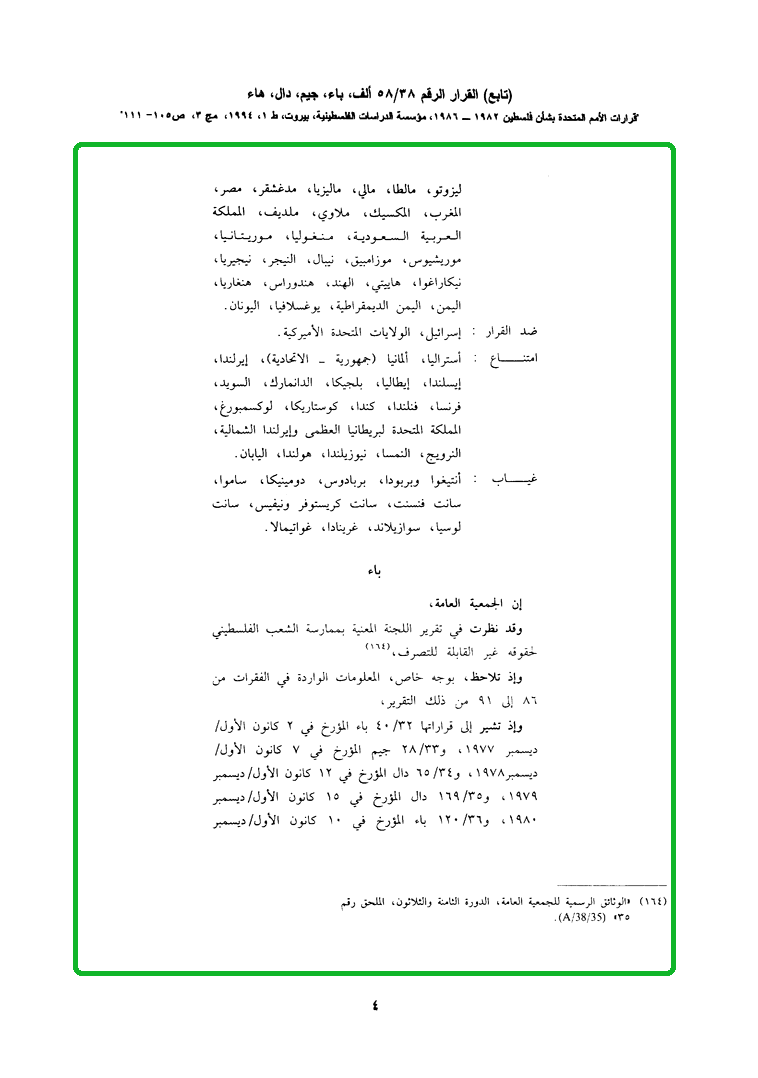 (تابع) القرار الرقم ٥٨/٣٨ ألف، باء، جيم، دال، هاء
"قرارات الأمم المتحدة بشأن فلسطين ١٩٨٢ ــ ١٩٨٦، مؤسسة الدراسات الفلسطينية، بيروت، ط ١، ١٩٩٤، مج ٣، ص١٠٥- ١١١"
ليزوتو، مالطا، مالي، ماليزيا، مدغشقر، مصر،
المغرب، المكسيك، ملاوي، ملديف، المملكة
العربية السعودية، منغوليا، موريتانيا،
موريشيوس، موزامبيق، نيبال، النيجر، نيجيريا،
نيكاراغوا، هاييتي، الهند، هندوراس، هنغاريا،
اليمن، اليمن الديمقراطية، يوغسلافيا، اليونان.
ضد القرار : إسرائيل، الولايات المتحدة الأميركية.
امتنـــــاع : أستراليا، ألمانيا (جمهورية ـ الاتحادية)، إيرلندا،
إيسلندا، إيطاليا، بلجيكا، الدانمارك، السويد،
فرنسا، فنلندا، كندا، كوستاريكا، لوكسمبورغ،
المملكة المتحدة لبريطانيا العظمى وإيرلندا الشمالية،
النرويج، النمسا، نيوزيلندا، هولندا، اليابان.
غيـــــاب : أنتيغوا وبربودا، بربادوس، دومينيكا، ساموا،
سانت فنسنت، سانت كريستوفر ونيفيس، سانت
لوسيا، سوازيلاند، غرينادا، غواتيمالا.
باء
إن الجمعية العامة،
وقد نظرت في تقرير اللجنة المعنية بممارسة الشعب الفلسطيني
لحقوقه غير القابلة للتصرف،(١٦٤)
وإذ تلاحظ، بوجه خاص، المعلومات الواردة في الفقرات من
٨٦ إلى ٩١ من ذلك التقرير،
وإذ تشير إلى قراراتها ٤٠/٣٢ باء المؤرخ في ٢ كانون الأول/
ديسمبر ١٩٧٧، و٢٨/٣٣ جيم المؤرخ في ٧ كانون الأول/
ديسمبر١٩٧٨، و٦٥/٣٤ دال المؤرخ في ١٢ كانون الأول/ديسمبر
١٩٧٩، و١٦٩/٣٥ دال المؤرخ في ١٥ كانون الأول/ديسمبر
١٩٨٠، و١٢٠/٣٦ باء المؤرخ في ١٠ كانون الأول/ديسمبر
(١٦٤) «الوثائق الرسمية للجمعية العامة، الدورة الثامنة والثلاثون، الملحق رقم
٣٥» (A/38/35).
٤